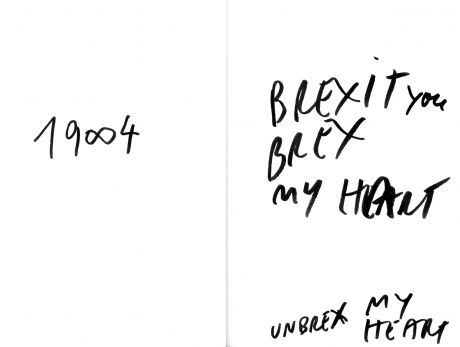 19∞4
BREXiT you
BREX
MY HEART
UNBREX MY
HEART